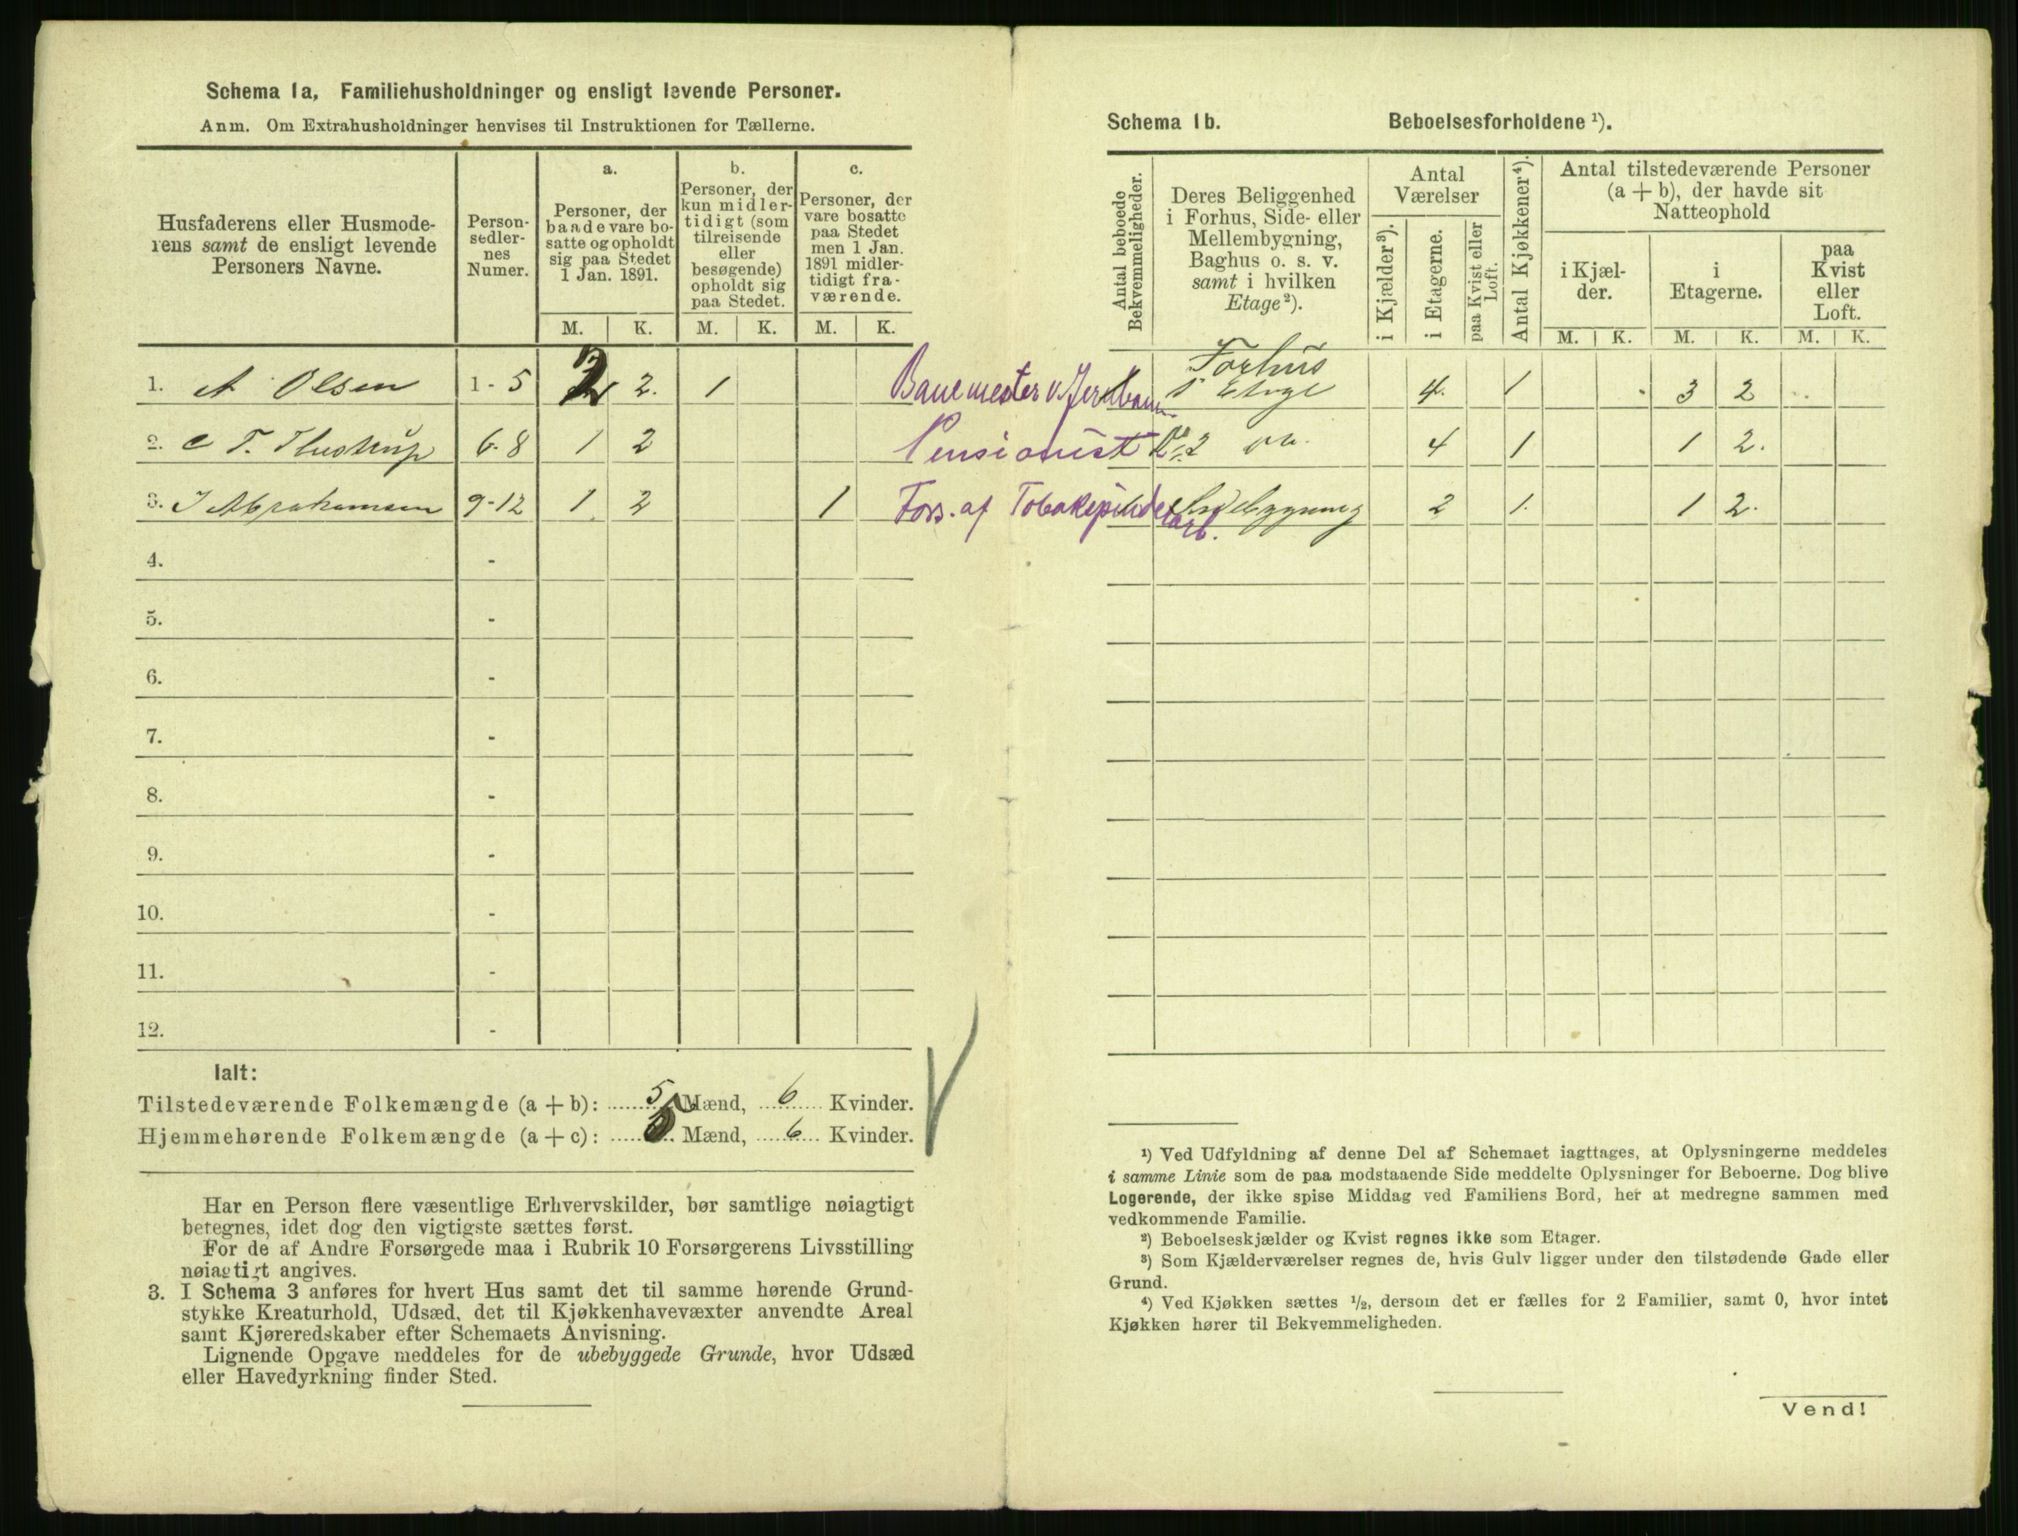 Schema 1a, Familiehusholdninger og ensligt levende Personer.
Anm. Om Extrahusholdninger henvises til Instruktionen for Tællerne.
Husfaderens eller Husmode-
rens samt de ensligt levende
Personers Navne.
Person-
sedler-
nes
Numer.
a.
Personer, der
baade vare bo-
satte og opholdt
sig paa Stedet
1 Jan. 1891.
b.
Personer, der
kun midler-
tidigt (som
tilreisende
eller
besøgende)
opholdt sig
paa Stedet.
c.
Personer, der
vare bosatte
paa Stedet
men 1 Jan.
1891 midler-
tidigt fra-
værende.
M. K. M. K. M. K.
1. A Olsen 1-5 2 2. 1
2. C T. Thustrup 6-8 1 2
3. I Abrahamsen 9-12 1 2 1
4. -
5. -
6. -
7. -
8. -
9. -
10. -
11. -
12. -
Ialt:
Tilstedeværende Folkemængde (a + b): 5 Mænd, 6 Kvinder.
Hjemmehørende Folkemængde (a + c): 5 Mænd, 6 Kvinder.
Har en Person flere væsentlige Erhvervskilder, bør samtlige nøiagtigt
betegnes, idet dog den vigtigste sættes først.
For de af Andre Forsørgede maa i Rubrik 10 Forsørgerens Livsstilling
nøiagtigt angives.
3. I Schema 3 anføres for hvert Hus samt det til samme hørende Grund-
stykke Kreaturhold, Udsæd, det til Kjøkkenhavevæxter anvendte Areal
samt Kjøreredskaber efter Schemaets Anvisning.
Lignende Opgave meddeles for de ubebyggede Grunde, hvor Udsæd
eller Havedyrkning finder Sted.
Schema 1b. Beboelsesforholdene ¹).
Antal beboede
Bekvemmeligheder.
Deres Beliggenhed
i Forhus, Side- eller
Mellembygning,
Baghus o. s. v.
samt i hvilken
Etage²).
Antal
Værelser
i Kjælder³).
i Etagerne.
paa Kvist eller
Loft.
Antal Kjøkkener⁴).
Antal tilstedeværende Personer
(a + b), der havde sit
Natteophold
i Kjæl-
der.
i
Etagerne.
paa
Kvist
eller
Loft.
M. K. M. K. M. K.
Forhus
Banemester v. Jernban 1 Etage 4. 1 3 2
Pensionist 2 4 1 1 2.
Fors. af Tobakspinderarb. Sidebygning 2 1. 1 2.
¹) Ved Udfyldning af denne Del af Schemaet iagttages, at Oplysningerne meddeles
i samme Linie som de paa modstaaende Side meddelte Oplysninger for Beboerne. Dog blive
Logerende, der ikke spise Middag ved Familiens Bord, her at medregne sammen med
vedkommende Familie.
²) Beboelseskjælder og Kvist regnes ikke som Etager.
³) Som Kjælderværelser regnes de, hvis Gulv ligger under den tilstødende Gade eller
Grund.
⁴) Ved Kjøkken sættes ½, dersom det er fælles for 2 Familier, samt 0, hvor intet
Kjøkken hører til Bekvemmeligheden.
Vend!